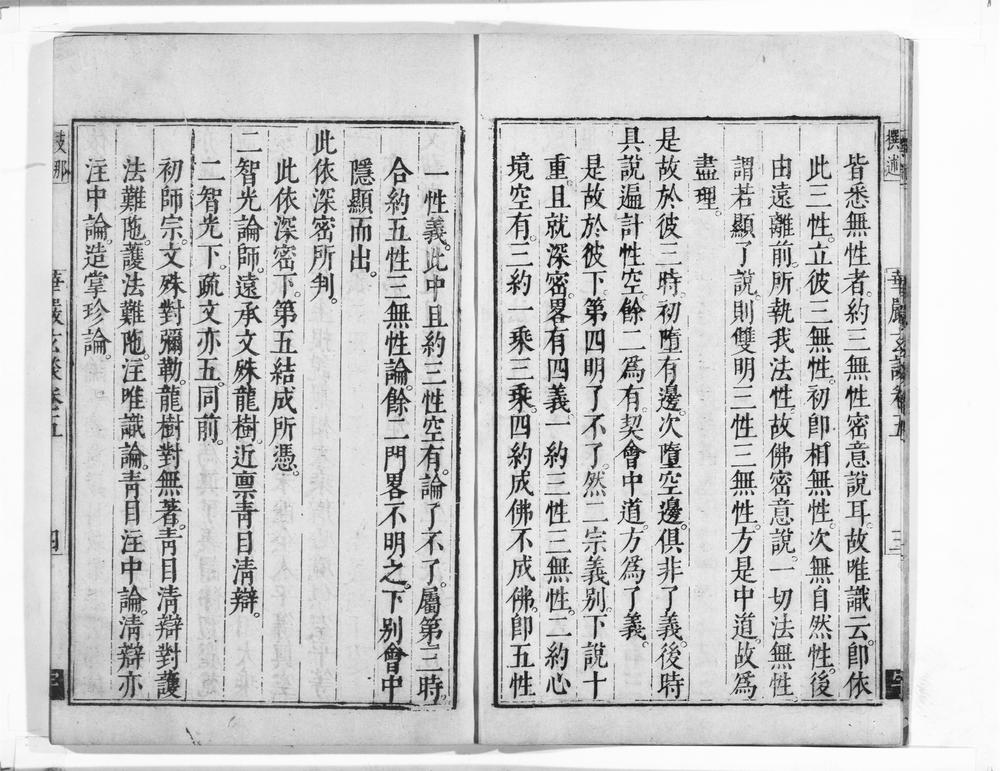 皆悉無性者。約三無性密意說耳。故唯識云。卽依
此三性。立彼三無性。初卽相無性。次無自然性。後
由遠離前。所執我法性。故佛密意說。一切法無性
謂若顯了說。則雙明三性三無性。方是中道。故爲
盡理。
是故於彼三時。初墮有邊。次墮空邊。俱非了義。後時
具說遍計性空。餘二爲有。契會中道。方爲了義。
是故於彼下。第四明了不了。然二宗義別。下說十
重。且就深密。畧有四義。一約三性三無性。二約心
境空有。三約一乘三乘。四約成佛不成佛。卽五性
一性義。此中且約三性空有。論了不了。屬第三時。
合約五性三無性論。餘一門畧不明之。下別會中
隱顯而出。
此依深密所判。
此依深密下。第五結成所憑。
二智光論師。遠承文殊龍樹。近禀靑目清辯。
二智光下。疏文亦五。同前。
初師宗。文殊對彌勒。龍樹對無著。靑目清辯對護
法難陁。護法難陁。注唯識論。靑目注中論。清辯亦
注中論。造掌珍論。
撰述
華嚴玄談卷五
三
支那
華嚴玄談卷五
四